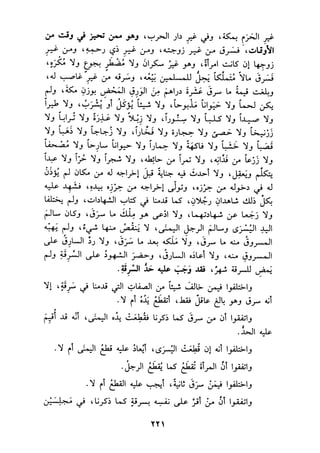 غير الحَرَم بمكة، وفي غير دار الحرب، وهو ممن تحيز في وقت من
الأوقات، فسرق من غير زوجته، ومن غير ذي رحمه، ومن غير
زوجها إن كانت امرأة، وهو غير سكران ولا مُضْطَرٍّ بجوع ولا مُكْرَهٌ،
فسرق مالاً مُتَمَلَّكاً يَحِلُّ للمسلمين بَيْعُه، وسرقه من غير غاصب له،
وبلغت قيمة ما سرق عَشَرَةَ دراهمَ مِنَ الوَرِق المَحْضِ بوزن مكة، ولم
يكن لحماً ولا حَيَواناً مَذْبوحاً، ولا شيئاً يُؤكَلُ أو يُشْرَبُ، ولا طيراً
ولا صيداً ولا كلباً ولا سِنَّوراً، ولا زِبْلاً ولا عَذِرَةً ولا تُراباً ولا
زرنيخاً ولا حصىً ولا حجارة ولا فَخَّاراً، ولا زجاجاً ولا ذَهَباً ولا
قَصَباً ولا خَشَباً ولا فاكهة ولا حماراً ولا حيواناً سارحاً ولا مُصْحَفاً
ولا زرْعاً من فَدَّانِه، ولا تمراً من حائطه، ولا شجراً ولا حُرّاً ولا عبداً
يتكلَّم ويَعقِل، ولا أحدث فيه جنايةً قَبْلَ إخراجِه له من مكان لم يُؤذَنْ
له في دخوله من حِرْزِه، وتولَّى إخراجَه من حِرْزِه بيده، فشهد عليه
بكلِّ ذلك شاهدانِ رجُلانِ، كما قدمنا في كتاب الشهادات، ولم يختلفا
ولا رَجَعا عن شهادتهما، ولا ادّعى هو مِلْكَ ما سَرَق، وكان سالمَ
اليدِ اليُسرَى وسالمَ الرجلِ اليمنى، لا يَنقُصُ منها شيء، ولم يَهَبْه
المسروقُ منه ما سَرَق، ولا مَلَكَه بعد ما سَرَق، ولا ردَّ السارقُ على
المسروق منه، ولا أعاذه السارق، وحضرَ الشهودُ على السَّرِقَةِ، ولم
يَمضِ للسرقة شهرٌ، فقد وَجَبَ عليه حَدُّ السَّرِقَةِ.
واختلفوا فيمن خالَفَ شيئاً من الصفاتِ التي قدمنا في سَرِقَةٍ، إلا
أنه سَرَق وهو بالغ عاقل فقط، أتُقطَعُ يَدُه أم لا.
واتفقوا أن من سَرَق كما ذكرنا فقُطِعَتْ يدُه اليمنى، أنه قد أُقِيمَ
عليه الحد.
واختلفوا إن قُطِعَتْ اليُسْرَى، أيُعادُ عليه القطع في اليمنى أم لا.
واتفقوا أنَّ المرأة تُقطَعُ كما يُقْطَعُ الرجل.
واختلفوا فيمَنْ سَرَقَ ثانيةً، أيجب عليه القطع أم لا.
واتفقوا أنَّ مَنْ أقرَّ على نفسه بسرقةٍ كما ذكرنا، في مَجلِسَيْن
٢٢١